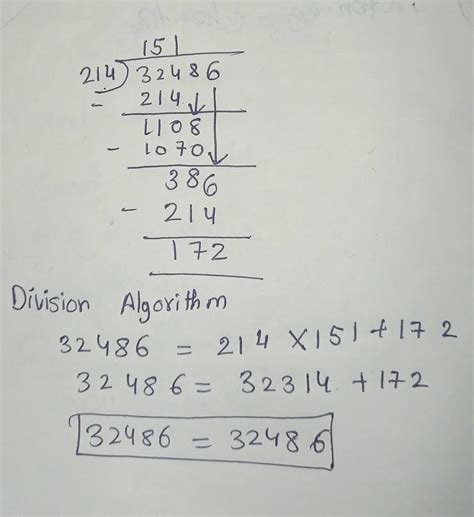 151
214)32486
- 214
1108
- 1070
386
- 214
172
Division Algorithm
32486 = 214 ×151+172
32486 = 32314 +172
32486 = 32486